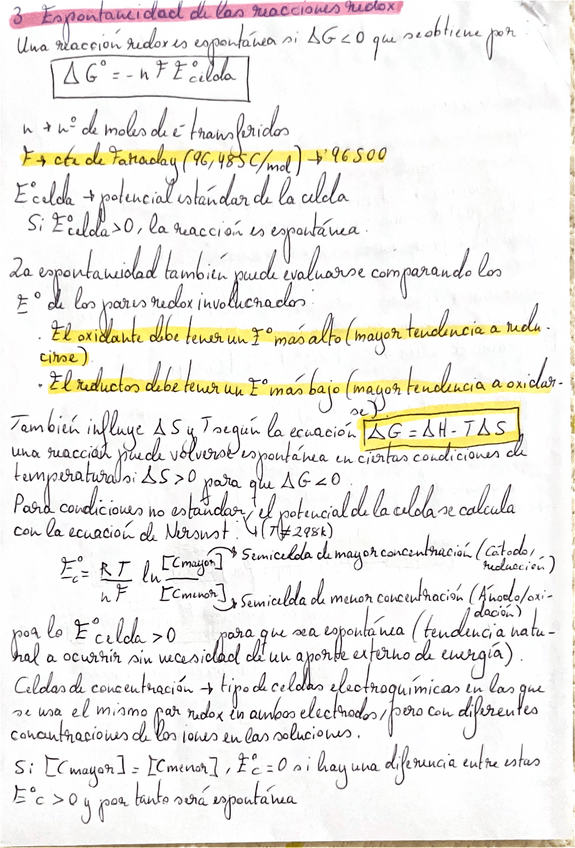 3 Espontaneidad de las reacciones redox
Una reacción redox es espontánea si ΔG<0 que se obtiene por:
ΔG° = -n F E°celda
n → nº de moles de e⁻ transferidos
F → cte de Faraday (96,485C/mol) → 96500
E°celda → potencial estándar de la celda
Si E°celda>0, la reacción es espontánea.
La espontaneidad también puede evaluarse comparando los
E° de los pares redox involucrados:
· El oxidante debe tener un E° más alto (mayor tendencia a redu-
cirse)
· El reductos debe tener un E° más bajo (mayor tendencia a oxidar-
se)
También influye ΔS y T según la ecuación ΔG = ΔH - TΔS
una reacción puede volverse espontánea en ciertas condiciones de
temperatura si ΔS>0 para que ΔG<0.
Para condiciones no estándar, el potencial de la celda se calcula
con la ecuación de Nersnst: ↳(T≠298k)
E°c = RT/nF ln [Cmayor]/[Cmenor]
→ Semicelda de mayor concentración (Cátodo/
reducción)
→ Semicelda de menor concentración (Ánodo/oxi-
dación)
por lo E°celda >0 para que sea espontánea (tendencia natu-
ral a ocurrir sin necesidad de un aporte externo de energía).
Celdas de concentración → tipo de celdas electroquímicas en las que
se usa el mismo par redox en ambos electrodos, pero con diferentes
concentraciones de los iones en las soluciones.
Si [Cmayor] = [Cmenor], E°c = 0 si hay una diferencia entre estas
E°c >0 y por tanto será espontánea